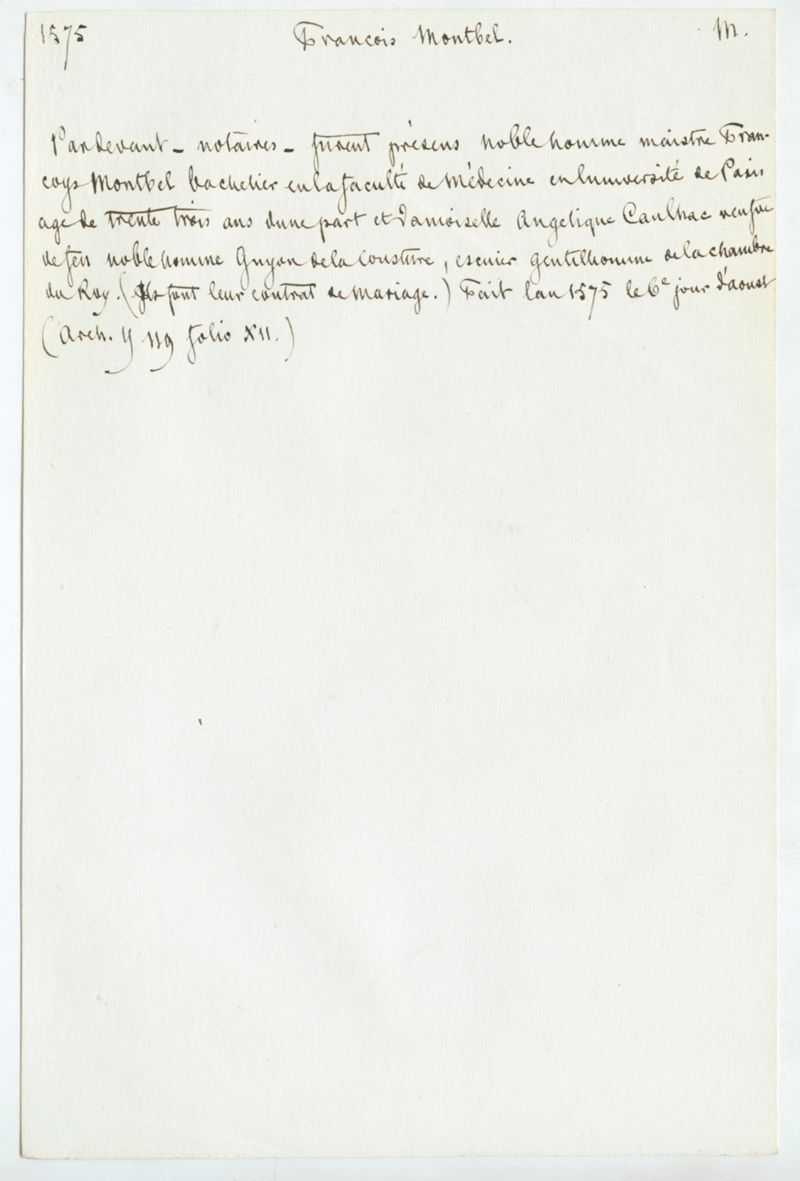 1575 François Montbel. M.
Pardevant - notaires - furent présens noble homme maistre Fran-
coys Montbel bachelier en la faculté de Médecine en luniversité de Paris
age de trente trois ans dune part et damoiselle Angelique Caulhac veufve
de feu noble homme Guyon de la Cousture, escuier gentilhomme de la chambre
du Roy. (Ils font leur contrat de mariage.) Fait lan 1575 le 6e jour d'aoust
(Arch. Y 119 folio XII.)